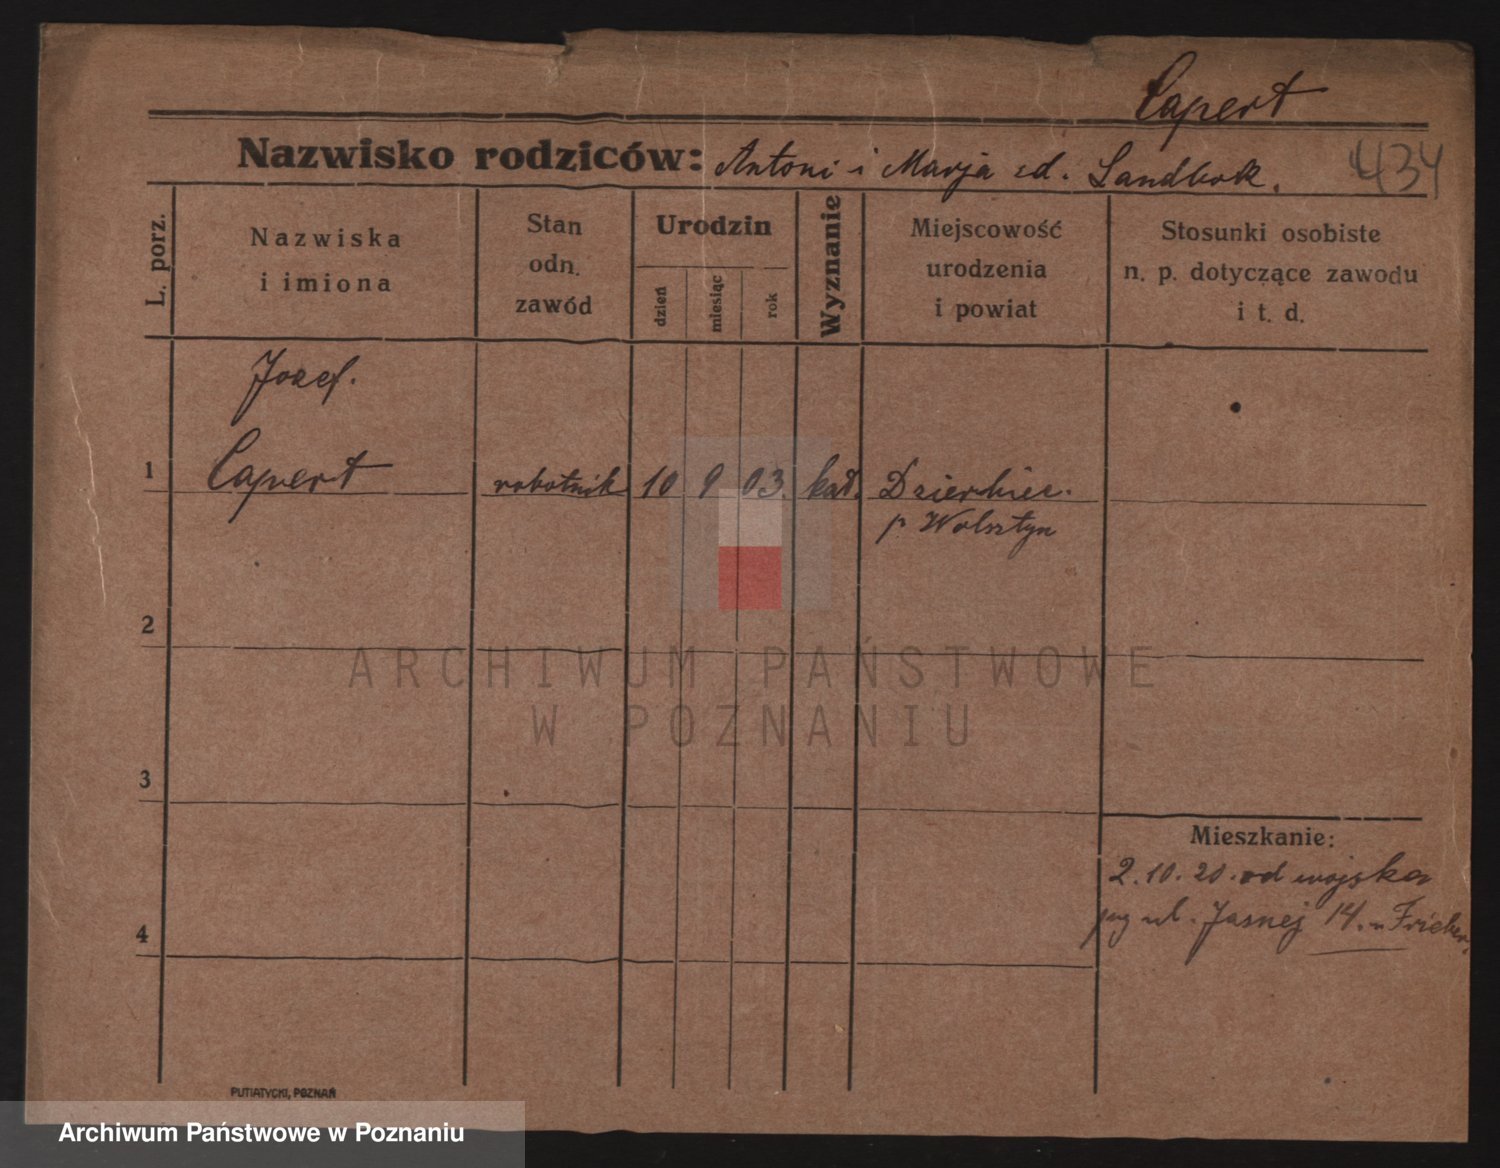 Capert
Nazwisko rodziców: Antoni i Marja zd. Landkok.
434
L. porz.
Nazwiska
i imiona
Stan
odn.
zawód
Urodzin
dzień
miesiąc
rok
Wyznanie
Miejscowość
urodzenia
i powiat
Stosunki osobiste
n. p. dotyczące zawodu
i t. d.
Józef.
1 Capert robotnik 10 9 03. kat.
p. Wolsztyn
2
ARCHIWUM PAŃSTWOWE
W POZNANIU
3
Mieszkanie:
2.10.20. od wojska
przy ul. Jasnej 14. u
4
PUTIATYCKI, POZNAŃ
Archiwum Państwowe w Poznaniu